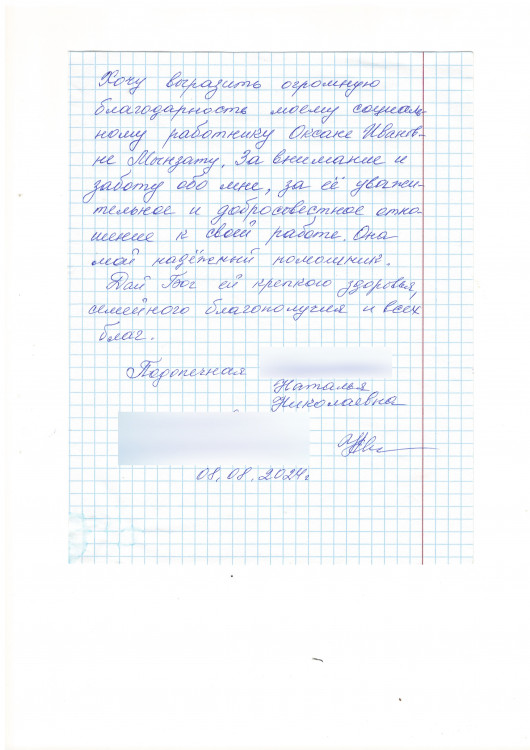 Хочу выразить огромную
благодарность моему социаль-
ному работнику Оксане Иванов-
не Мынзату. За внимание и
заботу обо мне, за её уважи-
тельное и добросовестное отно
шение к своей работе. Она
мой надёжный помошник.
Дай Бог ей крепкого здоровья,
семейного благополучия и всех
благ.
Подопечная
Наталья
Николаевна
08.08.2024г.